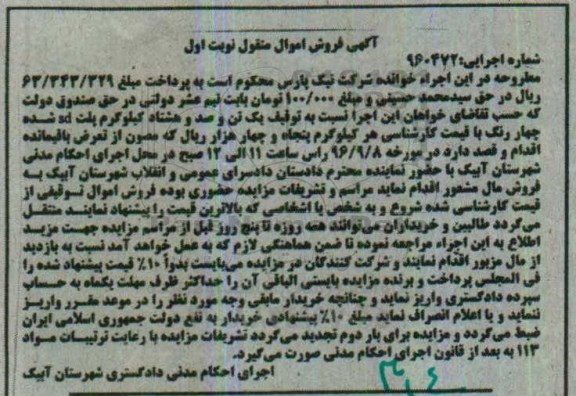 آگهی فروش اموال منقول نوبت اول
شماره اجرایی: ۹۶۰۴۷۲
مطروحه در این اجراء خوانده شرکت نیک پارس محکوم است به پرداخت مبلغ ۶۳/۳۴۳/۳۲۹
ریال در حق سیدمحمد حسینی و مبلغ ۱۰۰/۰۰۰ تومان بابت نیم عشر دولتی در حق صندوق دولت
که حسب تقاضای خواهان این اجرا نسبت به توقیف یک تن و صد و هشتاد کیلوگرم پلت sd شده
چهار رنگ با قیمت کارشناسی هر کیلوگرم پنجاه و چهار هزار ریال که مصون از تعرض باقیمانده
اقدام و قصد دارد در مورخه ۹۶/۹/۸ راس ساعت ۱۱ الی ۱۲ صبح در محل اجرای احکام مدنی
شهرستان آبیک با حضور نماینده محترم دادستان دادسرای عمومی و انقلاب شهرستان آبیک به
فروش مال مشعور اقدام نماید مراسم و تشریفات مزایده حضوری بوده فروش اموال توقیفی از
قیمت کارشناسی شده شروع و به شخص یا اشخاصی که بالاترین قیمت را پیشنهاد نمایند منتقل
می‌گردد طالبین و خریداران می‌توانند همه روزه تا پنج روز قبل از مراسم مزایده جهت مزید
اطلاع به این اجراء مراجعه نموده تا ضمن هماهنگی لازم که به عمل خواهد آمد نسبت به بازدید
از مال مزبور اقدام نمایند و شرکت کنندگان در مزایده می‌بایست بدواً ۱۰٪ قیمت پیشنهاد شده را
فی المجلس پرداخت و برنده مزایده بایستی الباقی آن را حداکثر ظرف مهلت یکماه به حساب
سپرده دادگستری واریز نماید و چنانچه خریدار مابقی وجه مورد نظر را در موعد مقرر واریز
ننماید و یا اعلام انصراف نماید مبلغ ۱۰٪ پیشنهادی خریدار به نفع دولت جمهوری اسلامی ایران
ضبط می‌گردد و مزایده برای بار دوم تجدید می‌گردد تشریفات مزایده با رعایت ترتیبات مواد
۱۱۳ به بعد از قانون اجرای احکام مدنی صورت می‌گیرد.
اجرای احکام مدنی دادگستری شهرستان آبیک